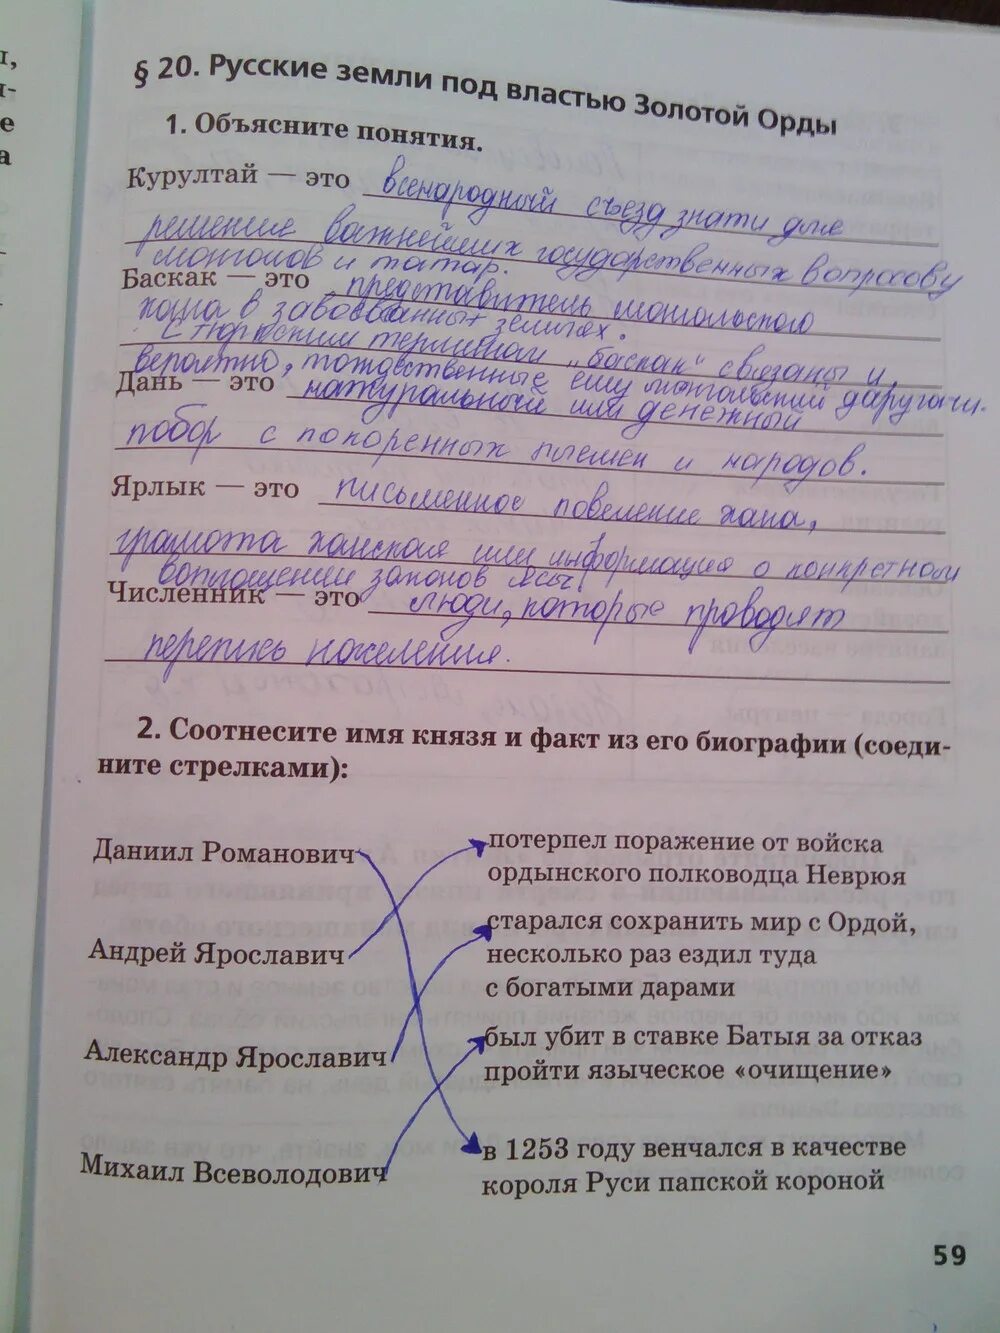 ы,
и-
е
а
§ 20. Русские земли под властью Золотой Орды
1. Объясните понятия.
Курултай — это всенародный съезд знати для
решения важнейших государственных вопросов у
монголов и татар.
Баскак — это представитель монгольского
хана в завоёванных землях.
С тюркским термином „баскак" связаны и,
вероятно, тождественные ему монгольский даругачи.
Дань — это натуральный или денежный
побор с покоренных племен и народов.
Ярлык — это письменное повеление хана,
грамота ханская или информация о конкретном
воплощении законов Ясы.
Численник — это люди, которые проводят
перепись населения.
2. Соотнесите имя князя и факт из его биографии (соеди-
ните стрелками):
Даниил Романович
потерпел поражение от войска
ордынского полководца Неврюя
Андрей Ярославич
старался сохранить мир с Ордой,
несколько раз ездил туда
с богатыми дарами
Александр Ярославич
был убит в ставке Батыя за отказ
пройти языческое «очищение»
Михаил Всеволодович
в 1253 году венчался в качестве
короля Руси папской короной
59